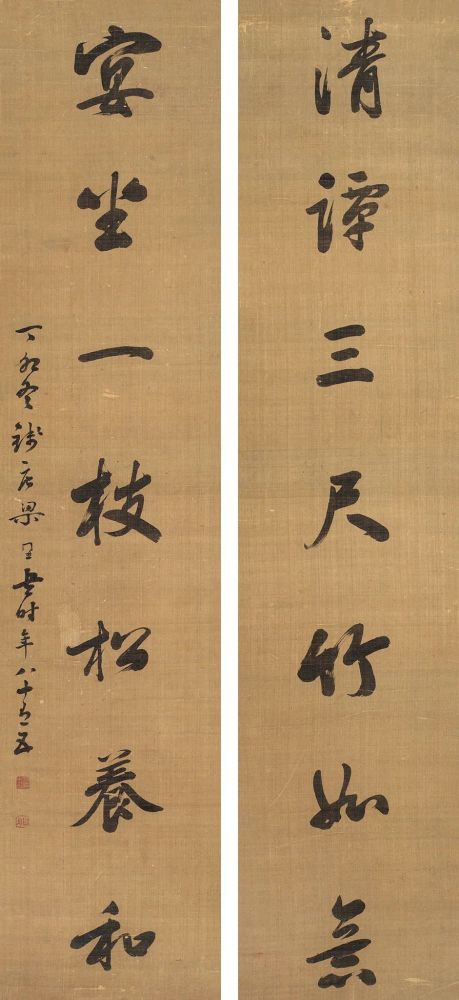 清譚三尺竹如意
宴坐一枝松養和
丁卯冬錢唐梁同書時年八十有五